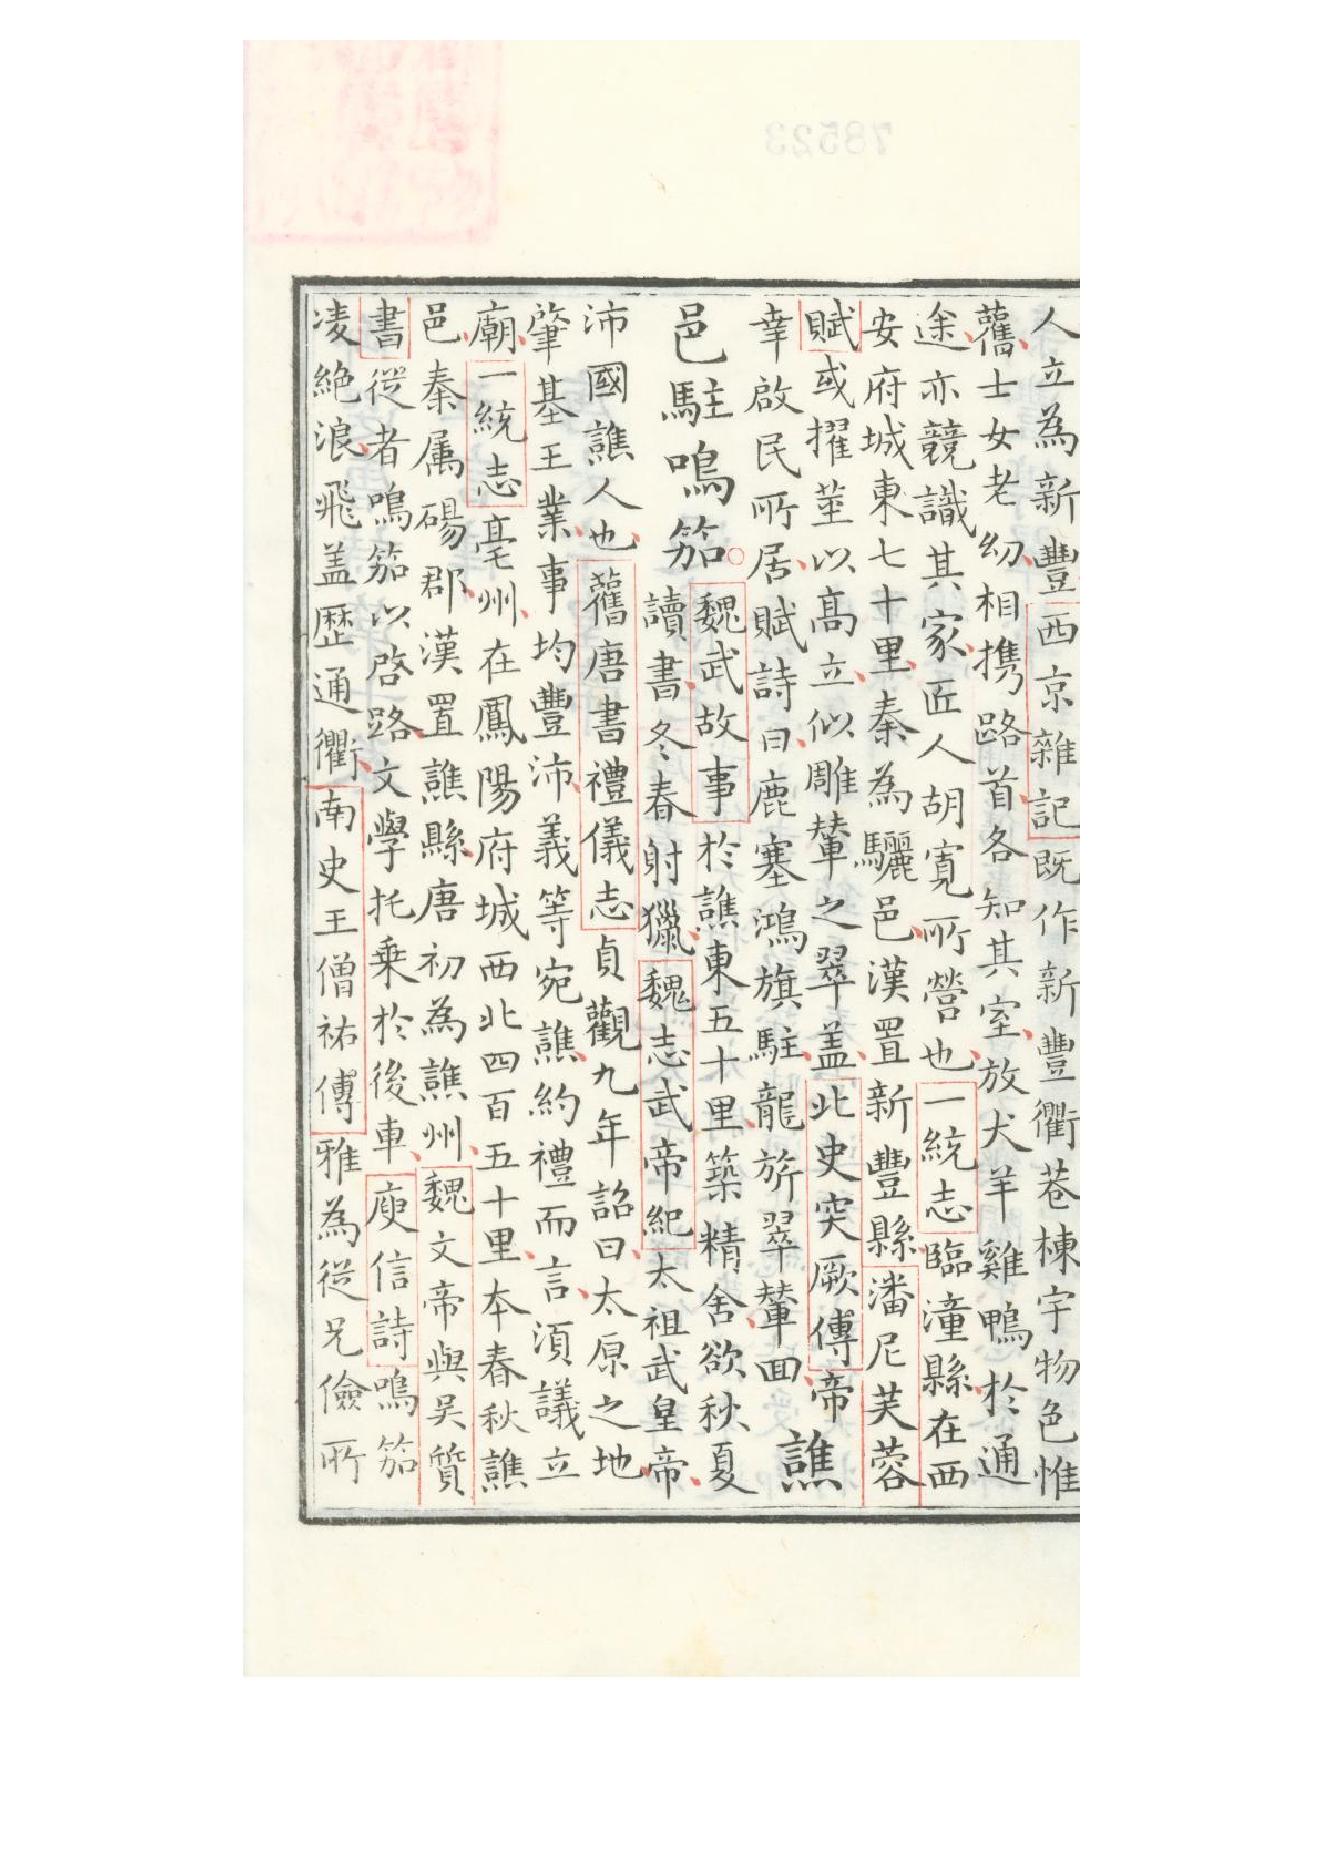 人立為新豐西京雜記既作新豐衢巷棟宇物色惟
舊士女老幼相携路首各知其室放犬羊雞鴨於通
途亦競識其家匠人胡寛所營也一統志臨潼縣在西
安府城東七十里秦為驪邑漢置新豐縣潘尼芙蓉
賦或擢莖以高立似雕輦之翠盖北史突厥傳帝
幸啟民所居賦詩曰鹿塞鴻旗駐龍旂翠輦囬
譙
邑駐鳴笳
魏武故事於譙東五十里築精舍欲秋夏
讀書冬春射獵魏志武帝紀太祖武皇帝
沛國譙人也舊唐書禮儀志貞觀九年詔曰太原之地
肇基王業事均豐沛義等宛譙約禮而言湏議立
廟一統志亳州在鳳陽府城西北四百五十里本春秋譙
邑秦属碭郡漢置譙縣唐初為譙州魏文帝與吴質
書從者鳴笳以啓路文學托乗於後車庾信詩鳴笳
凌絶浪飛盖歴通衢南史王僧祐傳雅為從兄儉所
78523